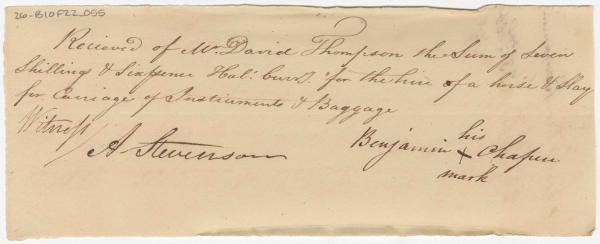 26-B10F22_055
Recieved of Mr. David Thompson the Sum of Seven
Shillings & Sixpence Hal. Curr. for the hire of a horse & Slay
for Carriage of Instruments & Baggage
Witness
A Stevenson
his
Benjamin X Chapeu
mark